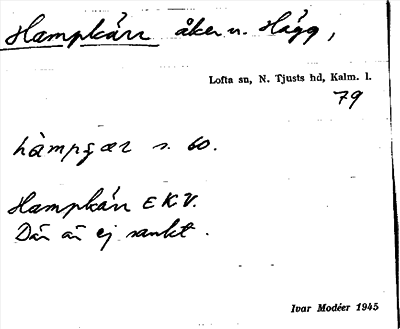 Hampkärr åker u. Hägg,
Lofta sn, N. Tjusts hd, Kalm. l.
79
hàmpçær s. 60.
Hampkärr EKV.
Där är ej sankt.
Ivar Modéer 1945